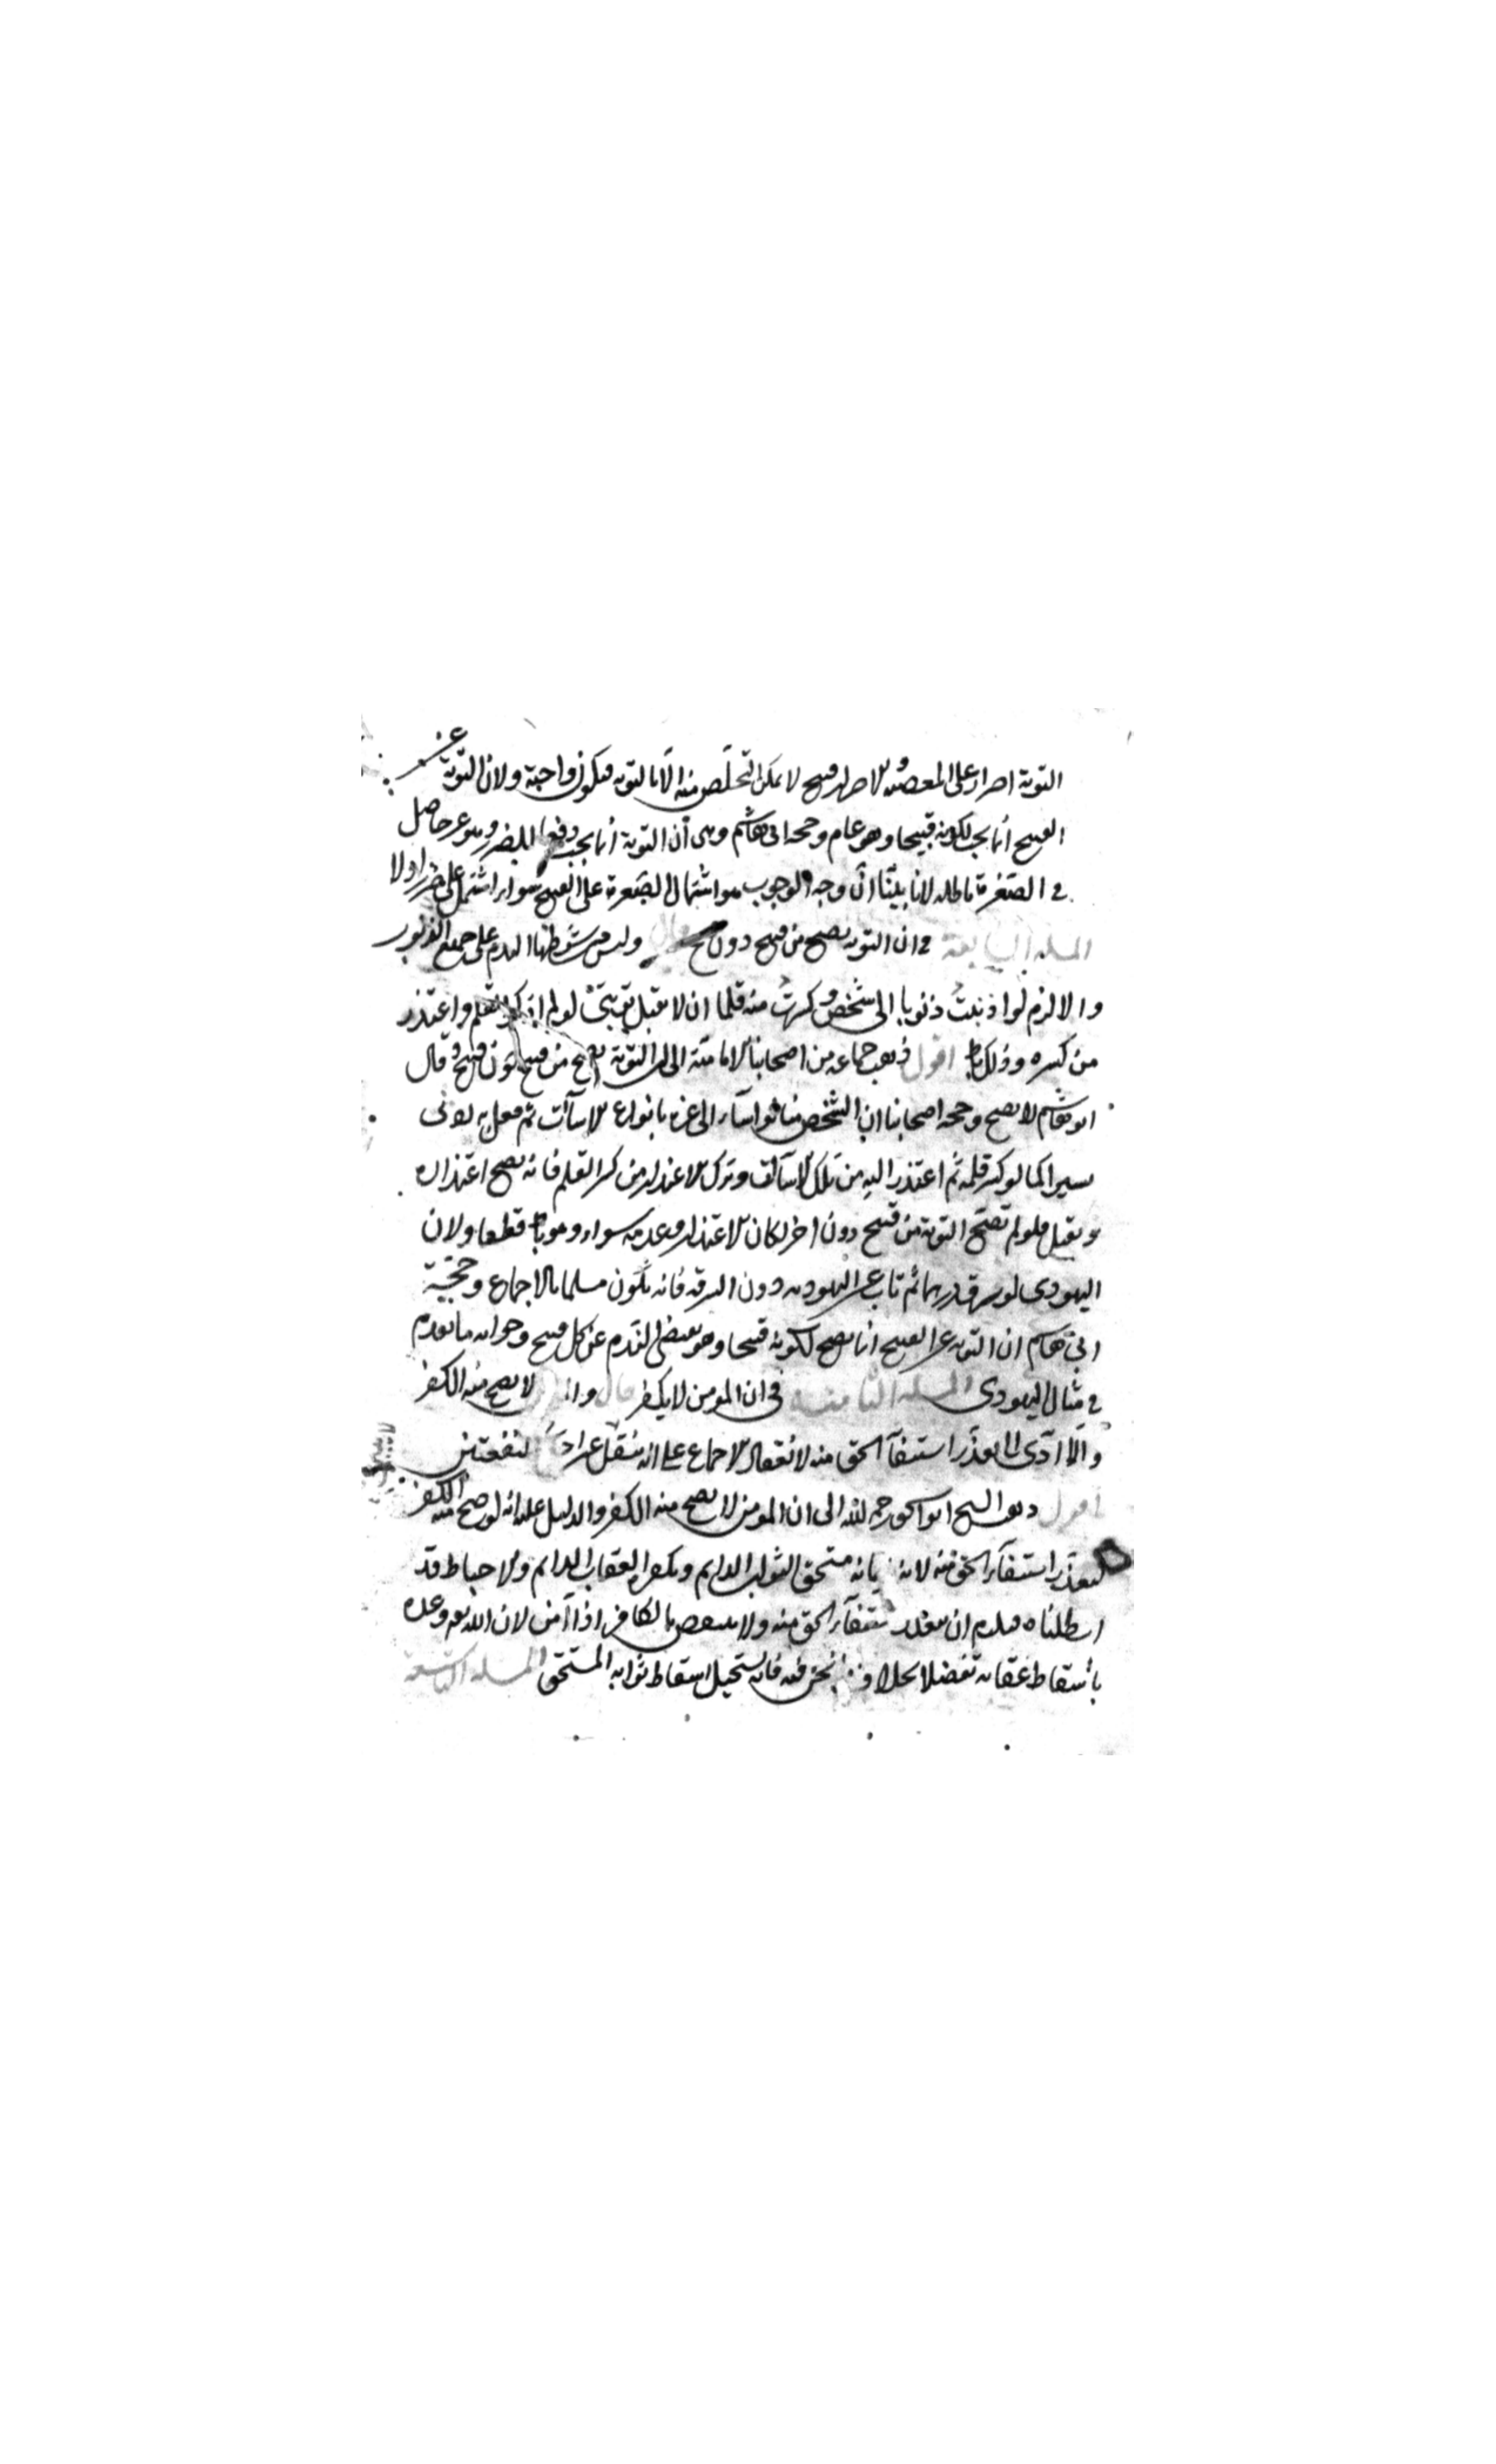 التوبة اصرار على المعصية والاصرار قبيح لا يمكن التخلص منه الا بالتوبة فيكون واجبة ولان التوبة عن
القبيح انما يجب لكونه قبيحا وهو عام وحجة ابى هاشم وهى أن التوبة انما يجب دفعا للضرر وهو غير حاصل
فى الصغيرة باطلة لانا بينا ان وجه الوجوب هو اشتمال الصغيرة على القبيح سواء اشتمل على ضرر اولا
المسلة السابعة فى ان التوبة يصح من قبيح دون قبيح قال وليس من شرطها الندم على جميع الذنوب
والا لزم لو اذنبت ذنوبا الى شخص وكسرت منه قلما ان لا يقبل توبتى لو لم اذكر القلم واعتذر
من كسره وذلك بط اقول ذهب جماعة من اصحابنا الامامية الى ان التوبة يصح من قبيح دون قبيح وقال
ابو هاشم لا يصح وحجة اصحابنا ان الشخص منا لو اساء الى غيره بانواع الاساآت ثم فعل به اذى
يسيرا كما لو كسر قلمه ثم اعتذر اليه من تلك الاسآآت وترك الاعتذار من كسر القلم فانه يصح اعتذاره
ويقبل فلو لم تصح التوبة من قبيح دون اخر لكان الاعتذار وعدمه سواء وهو بط قطعا ولان
اليهودى لو سرق درهما ثم تاب عن اليهودية دون السرقة فانه يكون مسلما بالاجماع وحجة
ابى هاشم ان التوبة عن القبيح انما يصح لكونه قبيحا وهو يقتضى الندم عن كل قبيح وجوابه ما تقدم
فى مثال اليهودى المسلة الثامنة فى ان المومن لا يكفر قال والمومن لا يصح منه الكفر
والا ادى الى تعذر استيفآء الحق منه لانعقاد الاجماع على انه لا
اقول ذهب الشيخ ابو اسحق رحمه الله الى ان المومن لا يصح منه الكفر والدليل عليه انه لو صح منه الكفر
لتعذر استيفآء الحق منه لانه بايمانه يستحق الثواب الدايم وبكفره العقاب الدايم والاحباط قد
ابطلناه فيلزم ان يتعذر استيفآء الحق منه ولا ينتقض بالكافر اذا آمن لان الله تع وعده
بأسقاط عقابه تفضلا بخلاف ما نحن فيه فانه يستحيل اسقاط ثوابه المستحق المسلة التاسعة